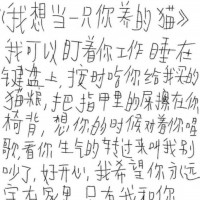 《我想当一只你养的猫》
我可以盯着你工作睡在
键盘上,按时吃你给我的
猫粮,把指甲里的屎擦在你
椅背,想你的时候对着你唱
歌,看你生气的转过来叫我别
叫了,好开心,我希望你永远
只有我和你